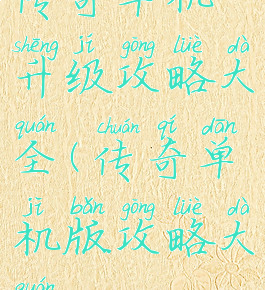 传奇单机
shēng jí gōng lüè dà
升级攻略大
quán chuán qí dān
全(传奇单
jī bǎn gōng lüè dà
机版攻略大
quán